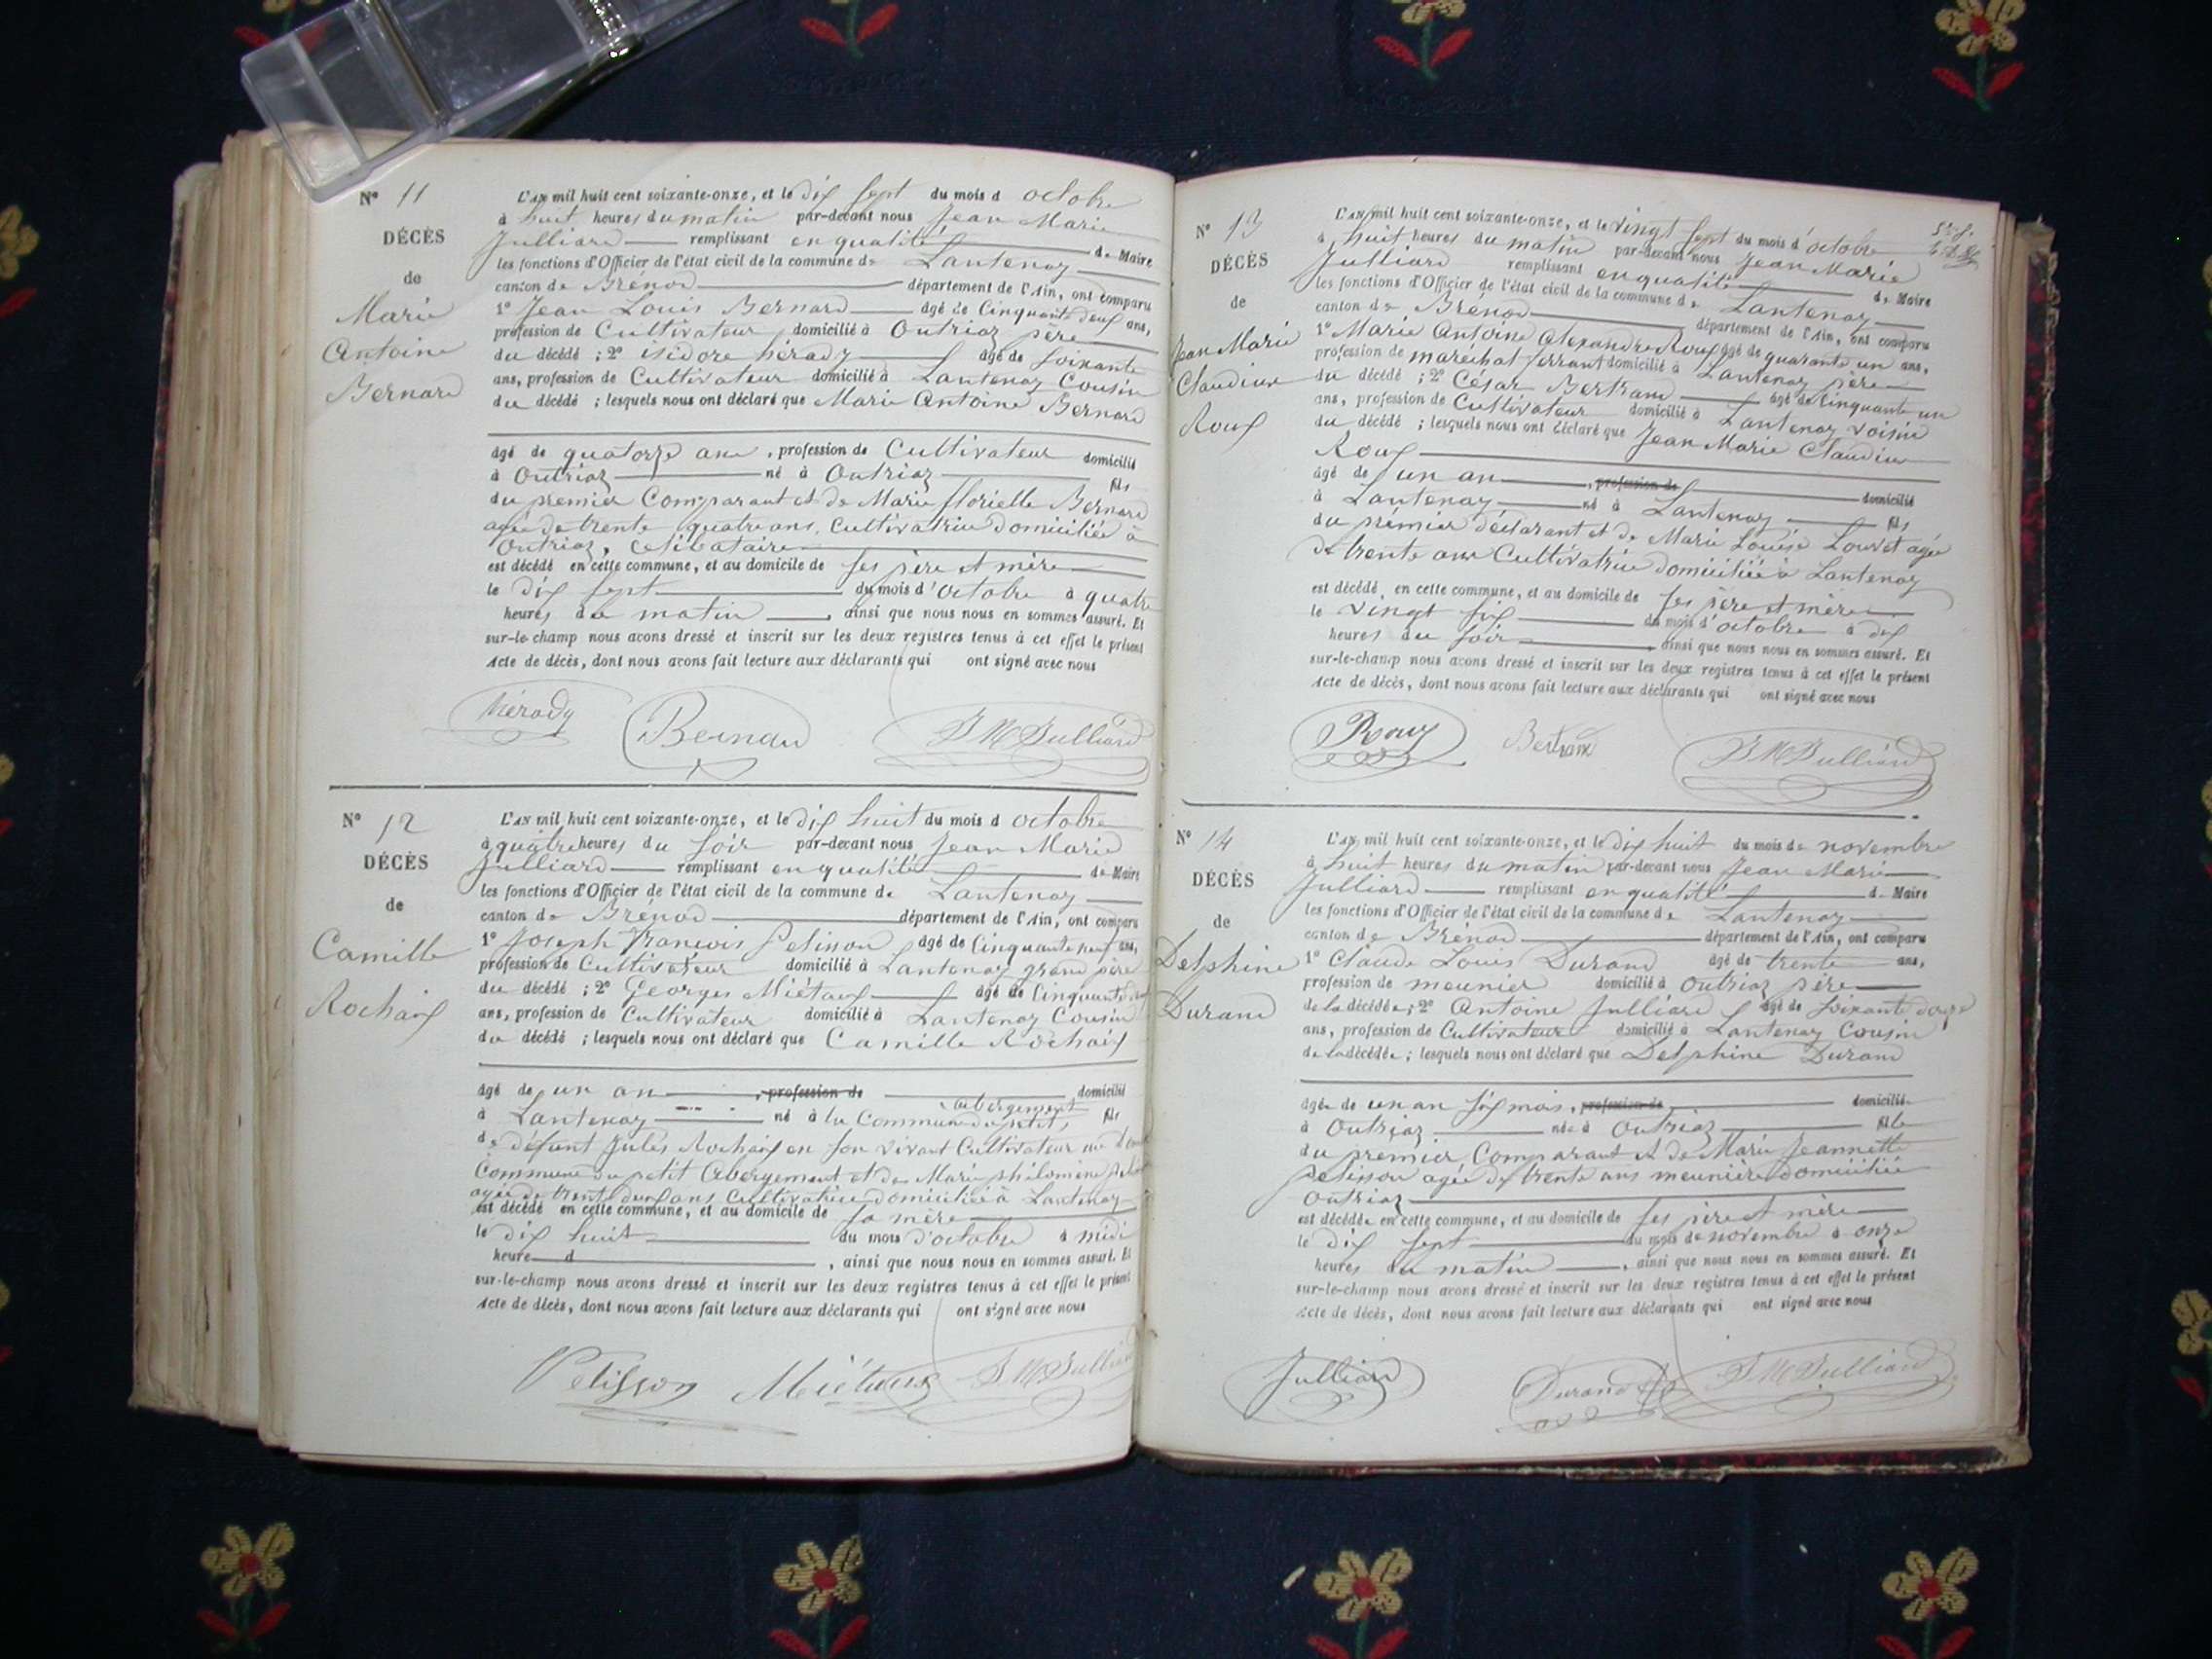 N° 11
DÉCÈS
de
Marie
Antoine
Bernard
L'AN mil huit cent soixante-onze, et le dix sept du mois d octobre
à huit heures du matin par-devant nous Jean Marie
Julliard remplissant en qualité de Maire
les fonctions d'Officier de l'état civil de la commune de Lantenay
canton de Brénod département de l'Ain, ont comparu
1° Jean Louis Bernard âgé de Cinquante deux ans,
profession de Cultivateur domicilié à Outriaz père
du décédé ; 2° isidore hérady âgé de soixante
ans, profession de Cultivateur domicilié à Lantenay Cousin
du décédé ; lesquels nous ont déclaré que Marie Antoine Bernard
âgé de quatorze ans, profession de Cultivateur domicilié
à Outriaz né à Outriaz fils
du premier Comparant et de Marie florielle Bernard
agée de trente quatre ans, Cultivatrice domiciliée à
Outriaz, Celibataire
est décédé en cette commune, et au domicile de ses père et mère
le dix sept du mois d'octobre à quatre
heures du matin, ainsi que nous nous en sommes assuré. Et
sur-le-champ nous avons dressé et inscrit sur les deux registres tenus à cet effet le présent
Acte de décès, dont nous avons fait lecture aux déclarants qui ont signé avec nous
hérady Bernard J M Julliard
N° 12
DÉCÈS
de
Camille
Rochaix
L'AN mil huit cent soixante-onze, et le dix huit du mois d octobre
à quatre heures du soir par-devant nous Jean Marie
Julliard remplissant en qualité de Maire
les fonctions d'Officier de l'état civil de la commune de Lantenay
canton de Brénod département de l'Ain, ont comparu
1° Joseph francois Pelisson âgé de Cinquante neuf ans,
profession de Cultivateur domicilié à Lantenay grand père
du décédé ; 2° Georges Miétaux âgé de Cinquante
ans, profession de Cultivateur domicilié à Lantenay Cousin
du décédé ; lesquels nous ont déclaré que Camille Rochaix
âgé de un an, profession de domicilié
à Lantenay né à la Commune du petit abergement fils
de défunt Jules Rochaix en son vivant Cultivateur
Commune du petit Abergement et de Marie philomène
agée de trente deux ans Cultivatrice domiciliée à Lantenay
est décédé en cette commune, et au domicile de sa mère
le dix huit du mois d'octobre à midi
heure d , ainsi que nous nous en sommes assuré. Et
sur-le-champ nous avons dressé et inscrit sur les deux registres tenus à cet effet le présent
Acte de décès, dont nous avons fait lecture aux déclarants qui ont signé avec nous
Pelisson Miétaux J M Julliard
N° 13
DÉCÈS
de
Jean Marie
Claudius
Roux
L'AN mil huit cent soixante-onze, et le vingt sept du mois d'octobre
à huit heures du matin par-devant nous Jean Marie
Julliard remplissant en qualité de Maire
les fonctions d'Officier de l'état civil de la commune de Lantenay
canton de Brénod département de l'Ain, ont comparu
1° Marie Antoine Alexandre Roux âgé de quarante un ans,
profession de maréchal ferrant domicilié à Lantenay père
du décédé ; 2° César Bertrand âgé de Cinquante un
ans, profession de Cultivateur domicilié à Lantenay voisin
du décédé ; lesquels nous ont déclaré que Jean Marie Claudius
Roux
âgé de un an, profession de domicilié
à Lantenay né à Lantenay fils
du prémier déclarant et de Marie Louise Louvet agée
de trente ans Cultivatrice domiciliée à Lantenay
est décédé, en cette commune, et au domicile de ses père et mère
le vingt six du mois d'octobre à dix
heures du soir ainsi que nous nous en sommes assuré. Et
sur-le-champ nous avons dressé et inscrit sur les deux registres tenus à cet effet le présent
Acte de décès, dont nous avons fait lecture aux déclarants qui ont signé avec nous
Roux Bertrand J M Julliard
N° 14
DÉCÈS
de
Delphine
Durand
L'AN mil huit cent soixante-onze, et le dix huit du mois de novembre
à huit heures du matin par-devant nous Jean Marie
Julliard remplissant en qualité de Maire
les fonctions d'Officier de l'état civil de la commune de Lantenay
canton de Brénod département de l'Ain, ont comparu
1° Claude Louis Durand âgé de trente ans,
profession de meunier domicilié à Outriaz père
de la décédée ; 2° Antoine Julliard âgé de soixante douze
ans, profession de Cultivateur domicilié à Lantenay Cousin
de la décédée ; lesquels nous ont déclaré que Delphine Durand
âgée de un an six mois, profession de domicilié
à Outriaz née à Outriaz fille
du premier Comparant et de Marie Jeannette
pelisson agée de trente ans meunière domiciliée
Outriaz
est décédée en cette commune, et au domicile de ses père et mère
le dix sept du mois de novembre à onze
heures du matin, ainsi que nous nous en sommes assuré. Et
sur-le-champ nous avons dressé et inscrit sur les deux registres tenus à cet effet le présent
Acte de décès, dont nous avons fait lecture aux déclarants qui ont signé avec nous
Julliard Durand J M Julliard